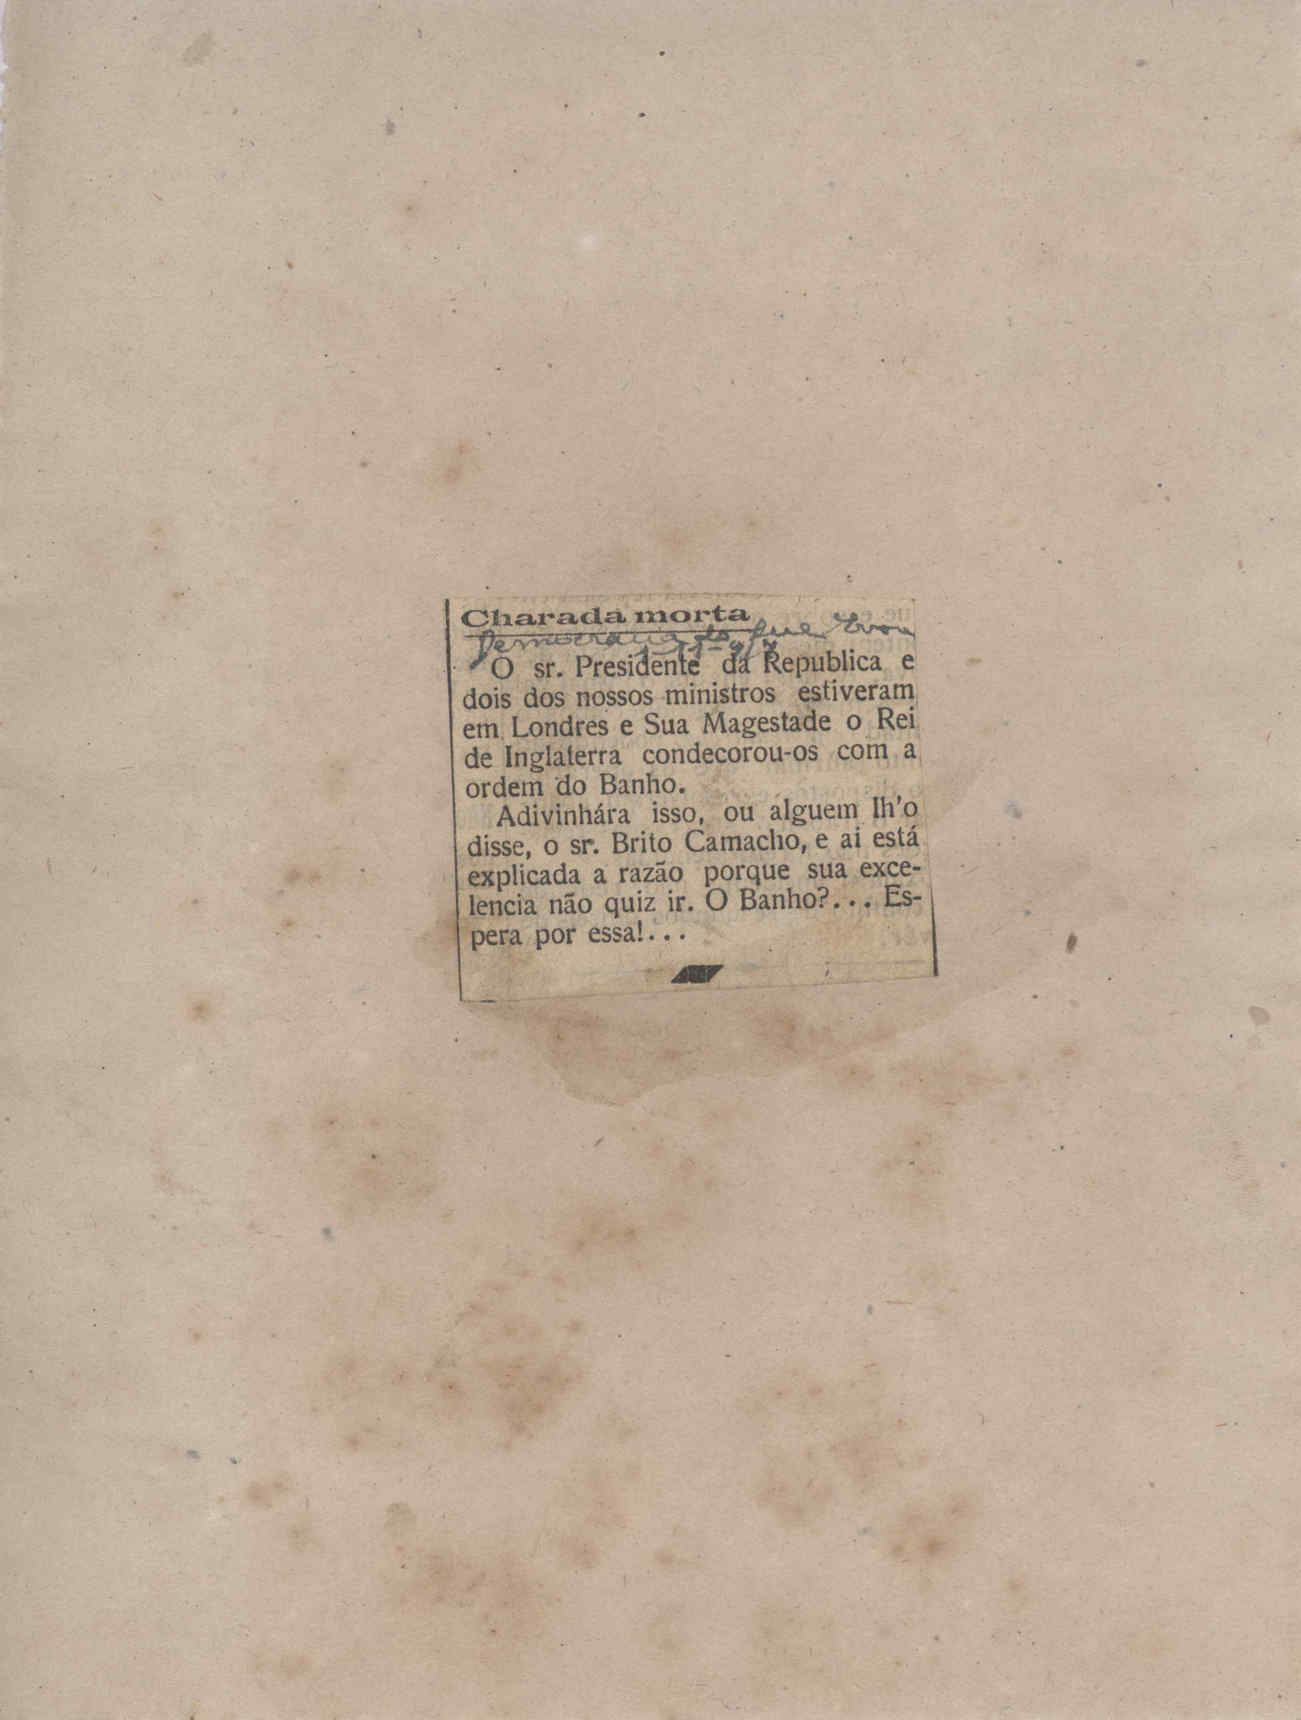 Charada morta
O sr. Presidente da Republica e
dois dos nossos ministros estiveram
em Londres e Sua Magestade o Rei
de Inglaterra condecorou-os com a
ordem do Banho.
Adivinhára isso, ou alguem lh'o
disse, o sr. Brito Camacho, e ai está
explicada a razão porque sua exce-
lencia não quiz ir. O Banho?... Es-
pera por essa!...